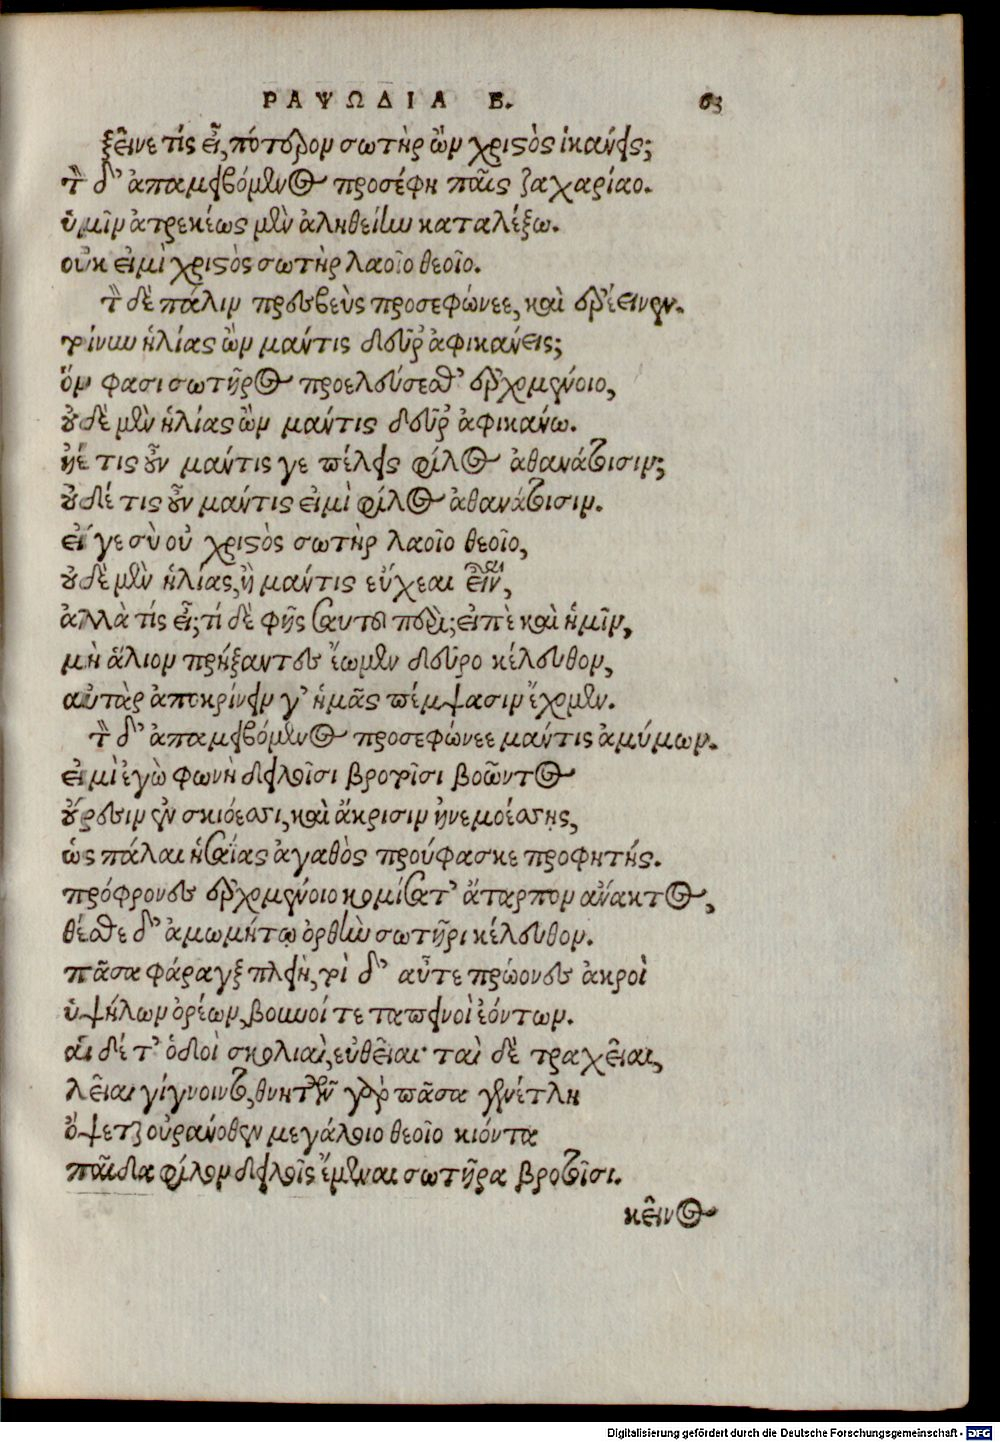 ΡΑΨΩΔΙΑ Β. 63
ξεῖνε τίς εἶ, πότερον σωτὴρ ὢν χριστὸς ἱκάνεις;
τὸν δ' ἀπαμειβόμενος προσέφη παῖς ζαχαρίαο.
ὑμῖν ἀτρεκέως μὲν ἀληθείην καταλέξω.
οὐκ εἰμὶ χριστὸς σωτὴρ λαοῖο θεοῖο.
τὸν δὲ πάλιν πρεσβεὺς προσεφώνεε, καὶ ἐρέεινεν.
τρίνην ἡλίας ὢν μάντις δεῦρ' ἀφικάνεις;
ὅν φασι σωτῆρος προελεύσεσθ' ἐρχομένοιο,
οὐδὲ μὲν ἡλίας ὢν μάντις δεῦρ' ἀφικάνω.
ἠέ τις οὖν μάντις γε πέλεις φίλος ἀθανάτοισιν;
οὐδέ τις οὖν μάντις εἰμὶ φίλος ἀθανάτοισιν.
εἴ γε σὺ οὐ χριστὸς σωτὴρ λαοῖο θεοῖο,
οὐδὲ μὲν ἡλίας, ἢ μάντις εὔχεαι εἶναι,
ἀλλὰ τίς εἶ; τί δὲ φῂς σαυτοῦ πέρι; εἰπὲ καὶ ἡμῖν,
μὴ ἅλιον πρήξαντες ἴωμεν δεῦρο κέλευθον,
αὐτὰρ ἀποκρίνειν γ' ἡμᾶς πέμψασιν ἔχομεν.
τὸν δ' ἀπαμειβόμενος προσεφώνεε μάντις ἀμύμων.
εἰμὶ ἐγὼ φωνὴ δειλοῖσι βροτοῖσι βοῶντος
οὔρεσιν ἐν σκιόεσσι, καὶ ἄκρισιν ἠνεμοέσσης,
ὡς πάλαι ἡσαΐας ἀγαθὸς προύφασκε προφητής.
πρόφρονες ἐρχομένοιο κομίσατ' ἄταρπον ἄνακτος,
θέσθε δ' ἀμωμήτῳ ὀρθὴν σωτῆρι κέλευθον.
πᾶσα φάραγξ πλείη, τοὶ δ' αὖτε πρώονες ἄκροὶ
ὑψήλων ὀρέων, βουνοί τε ταπεινοὶ ἐόντων.
αἱ δέ τ' ὁδοὶ σκολιαὶ, εὐθεῖαι· ταὶ δὲ τραχεῖαι,
λεῖαι γίγνοιντο, θνητῶν γὰρ πᾶσα γενέτλη
ὄψεται οὐρανόθεν μεγάλοιο θεοῖο κιόντα
παῖδα φίλον δειλοῖς ἔμεναι σωτῆρα βροτοῖσι.
κεῖνος
Digitalisierung gefördert durch die Deutsche Forschungsgemeinschaft - DFG